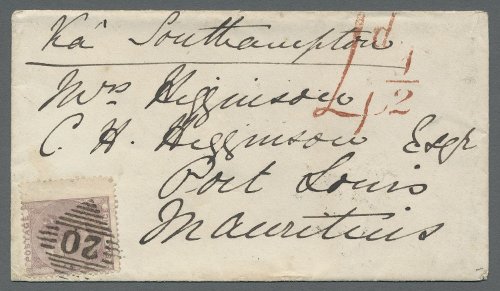 Via Southampton
1d 1/2
Mrs Higginson
C. H. Higginson Esqr
Port Louis
Mauritius
POSTAGE
20